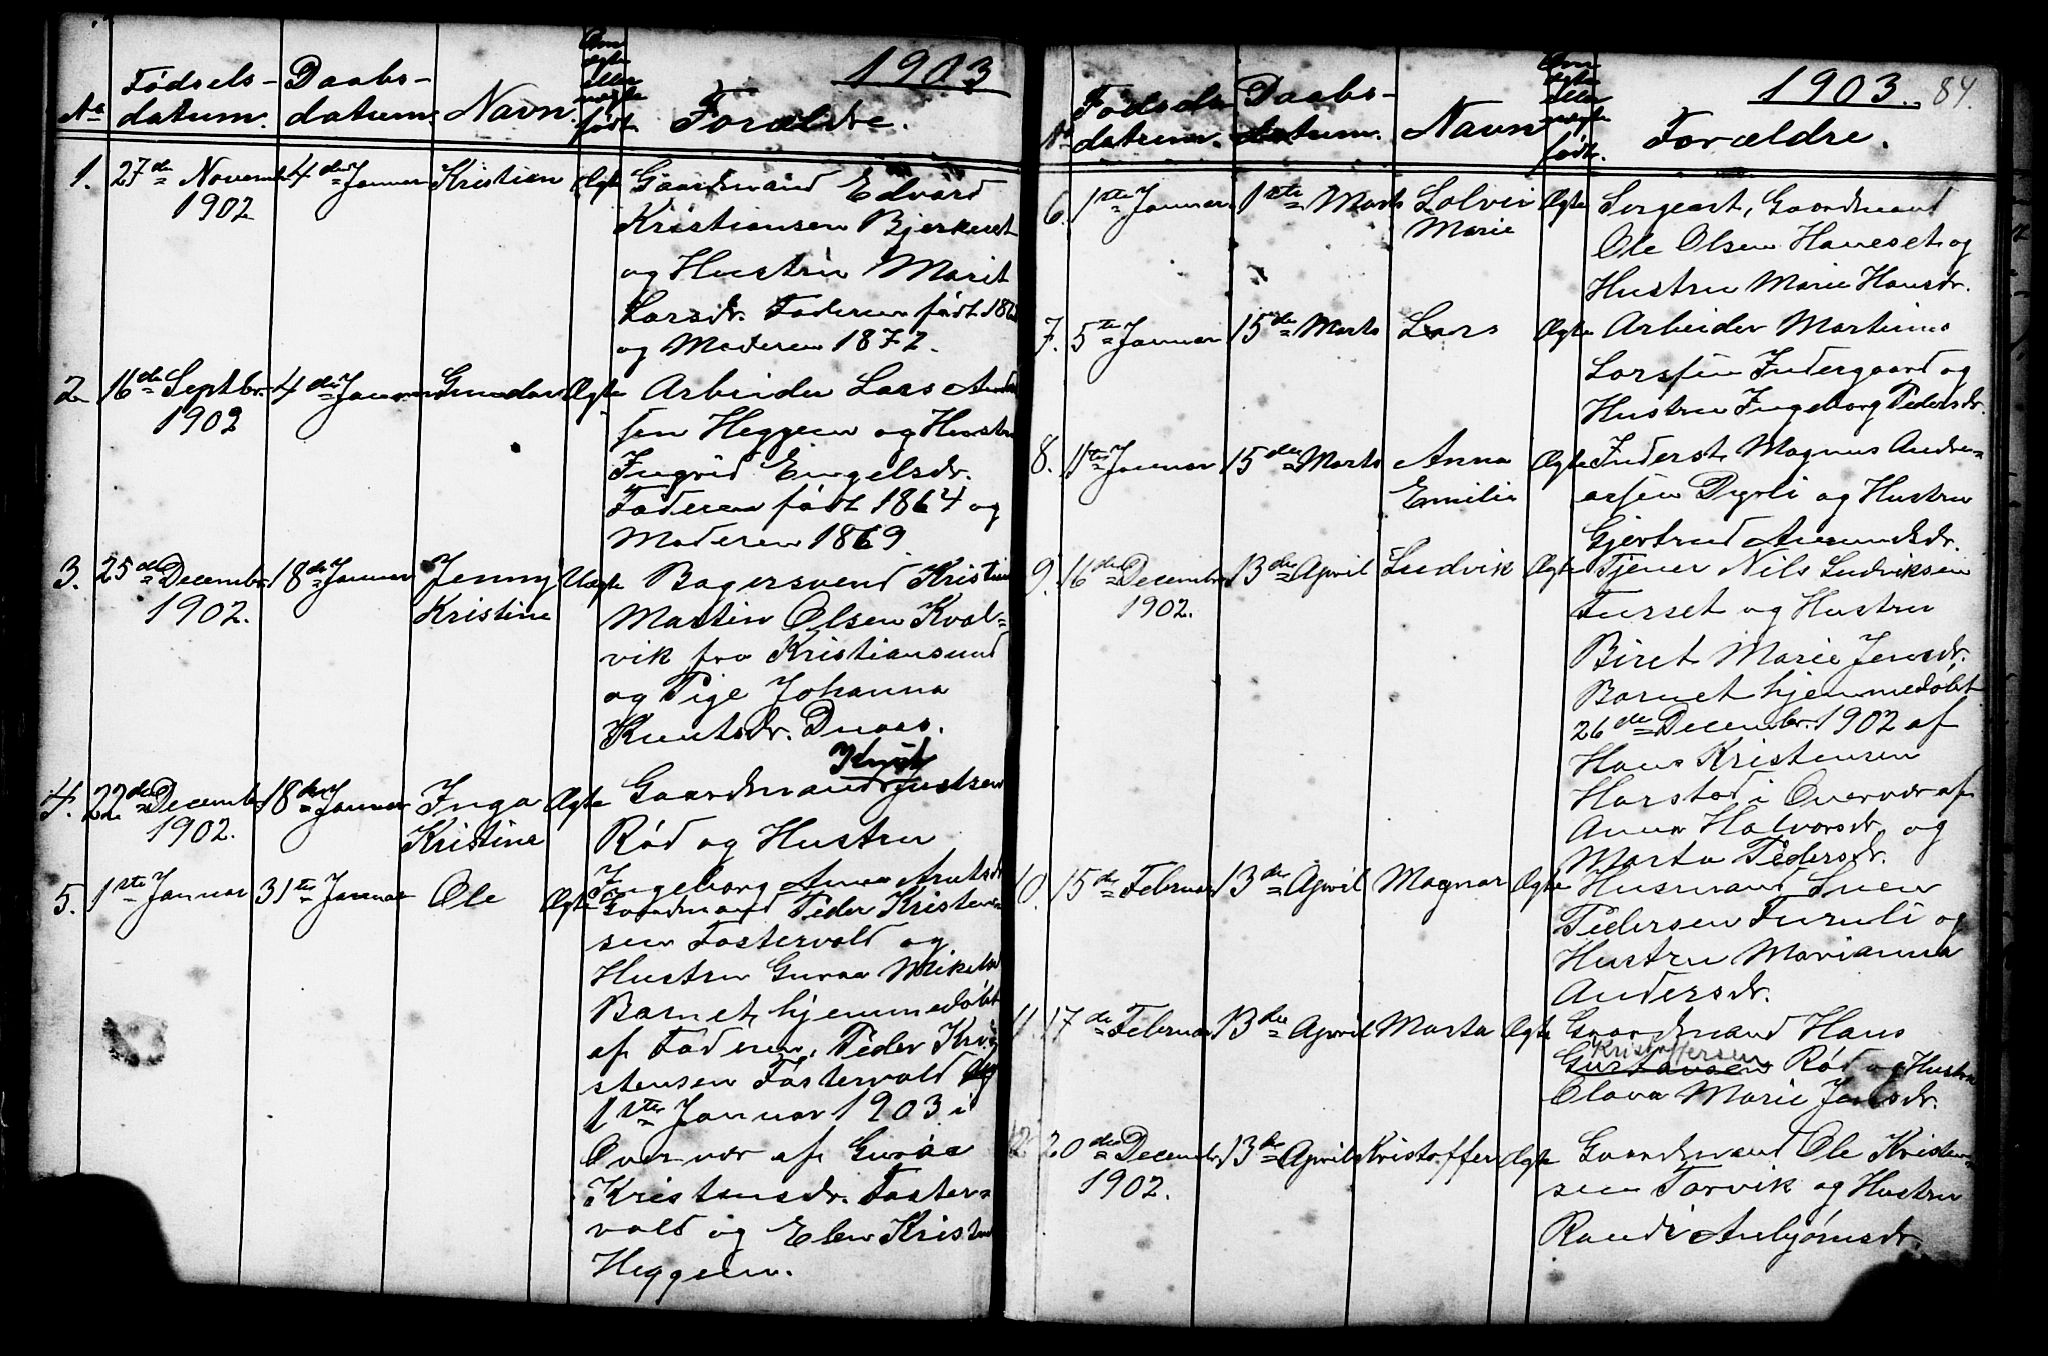 1903
No
Fødsels-
datum.
Daabs-
datum.
Navn.
Om
ægte
eller
uægte
født.
Forældre.
1. 27de Novemb. 4de Januar Kristian Ægte Gaardmand Edvard
1902 Kristiansen Bjerkeset
og Hustru Marit
Larsdr. Faderen født
og Moderen 1872.
2 16de Septbr. 4de Januar Gunder Ægte Arbeider Lars
1902 sen Heggem og Hustru
Ingrid Engelsdr.
Faderen født 1864 og
Moderen 1869.
3. 25de Decembr. 18de Januar Jenny Uægte Bagersvend Kristian
1902. Kristine Martin Olsen Kval-
vik fra Kristiansund
og Pige Johanna
Knutsdr. Duaas.
Knut
4. 22de Decembr. 18de Januar Inga Ægte Gaardmand Justsen
1902. Kristine Rød og Hustru
Ingeborg Anna
5. 1ste Januar 31te Januar Ole Ægte Gaardmand Peder Kristen-
sen Fostervold og
Hustru Guroa
Barnet hjemmedøbt
af Faderen, Peder Kri-
stensen Fostervold
1ste Januar 1903 i
Overvær af Guroa
Kristensdr. Foster-
vold og Elen
Heggem.
1903. 84.
No
Fødsels-
datum.
Daabs-
datum.
Navn
Om
ægte
eller
uægte
født.
Forældre.
6. 1ste Januar 1ste Marts Solvei Ægte Sergeant, Gaardmand
Marie Ole Olsen Haneset og
Hustru Marie Hansdr.
7. 5te Januar 15de Marts Lars Ægte Arbeider Martinus
Larssen Indergaard og
Hustru Ingeborg Pedersdr.
8. 11te Januar 15de Marts Anna Ægte Inderst Magnus Andre-
Emilie assen Dyrli og Hustru
Gjertrud Amundsdr.
9. 16de Decembr. 13de April Ludvik Ægte Tjener Nils Ludviksen
1902. Furset og Hustru
Beret Marie Jensdr.
Barnet hjemmedøbt
26de Decembr. 1902 af
Hans Kristensen
Harstad i Overvær af
Anna Halvorsdr. og
Marta Pedersdr.
10. 15de Februar 13de April Magnar Ægte Husmand Sven
Pedersen Furuli og
Hustru Marianna
Andersdr.
11. 17de Februar 13de April Marta Ægte Gaardmand Hans
Kristoffersen
Gustavsen Rød og Hustru
Olava Marie Jansdr.
12. 20de Decembr. 13de April Kristoffer Ægte Gaardmand Ole Kristen-
1902. sen Torvik og Hustru
Randi Anbjørnsdr.